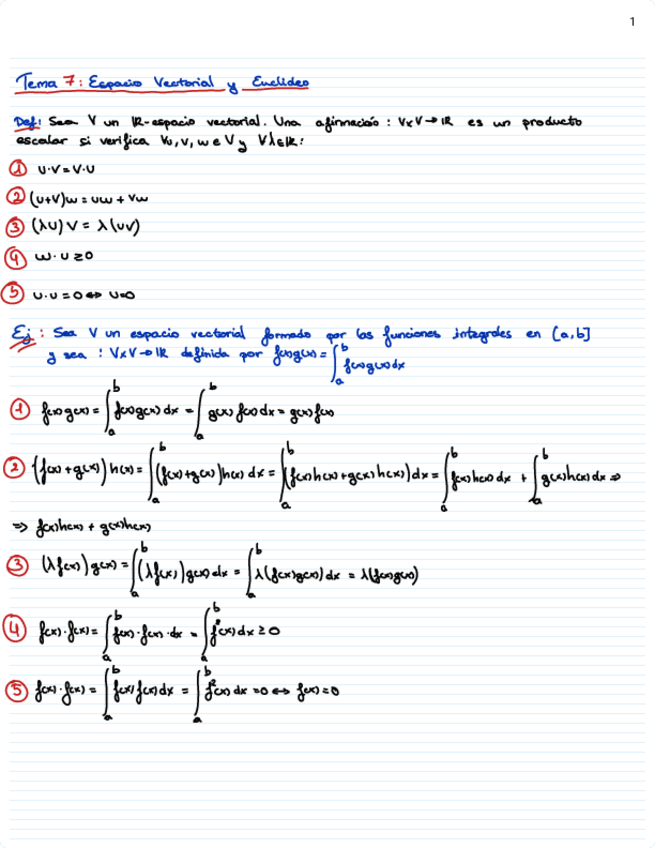 1
Tema 7: Espacio Vectorial y Euclideo
Def: Sea V un ℝ-espacio vectorial. Una afirmación : V×V→ℝ es un producto
escalar si verifica ∀u, v, w ∈ V y ∀λ∈ℝ:
① u·v = v·u
② (u+v)w = uw + vw
③ (λu)v = λ(uv)
④ w·u ≥ 0
⑤ u·u = 0 ⇔ u=0
Ej: Sea V un espacio vectorial formado por las funciones integrales en [a,b]
y sea : V×V→ℝ definida por f(x)g(x) = ∫_a^b f(x)g(x)dx
① f(x)g(x) = ∫_a^b f(x)g(x) dx = ∫_a^b g(x) f(x) dx = g(x) f(x)
② (f(x)+g(x)) h(x) = ∫_a^b (f(x)+g(x))h(x) dx = ∫_a^b (f(x)h(x)+g(x)h(x))dx = ∫_a^b f(x)h(x) dx + ∫_a^b g(x)h(x)dx ⇒
⇒ f(x)h(x) + g(x)h(x)
③ (λf(x)) g(x) = ∫_a^b (λf(x))g(x) dx = ∫_a^b λ(f(x)g(x)) dx = λ(f(x)g(x))
④ f(x)·f(x) = ∫_a^b f(x)·f(x)·dx = ∫_a^b f²(x) dx ≥ 0
⑤ f(x)·f(x) = ∫_a^b f(x) f(x) dx = ∫_a^b f²(x) dx = 0 ⇔ f(x) = 0